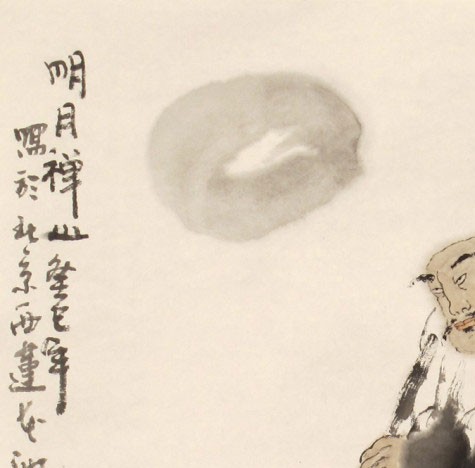 明月禅心癸巳年
寫於北京西蓮花